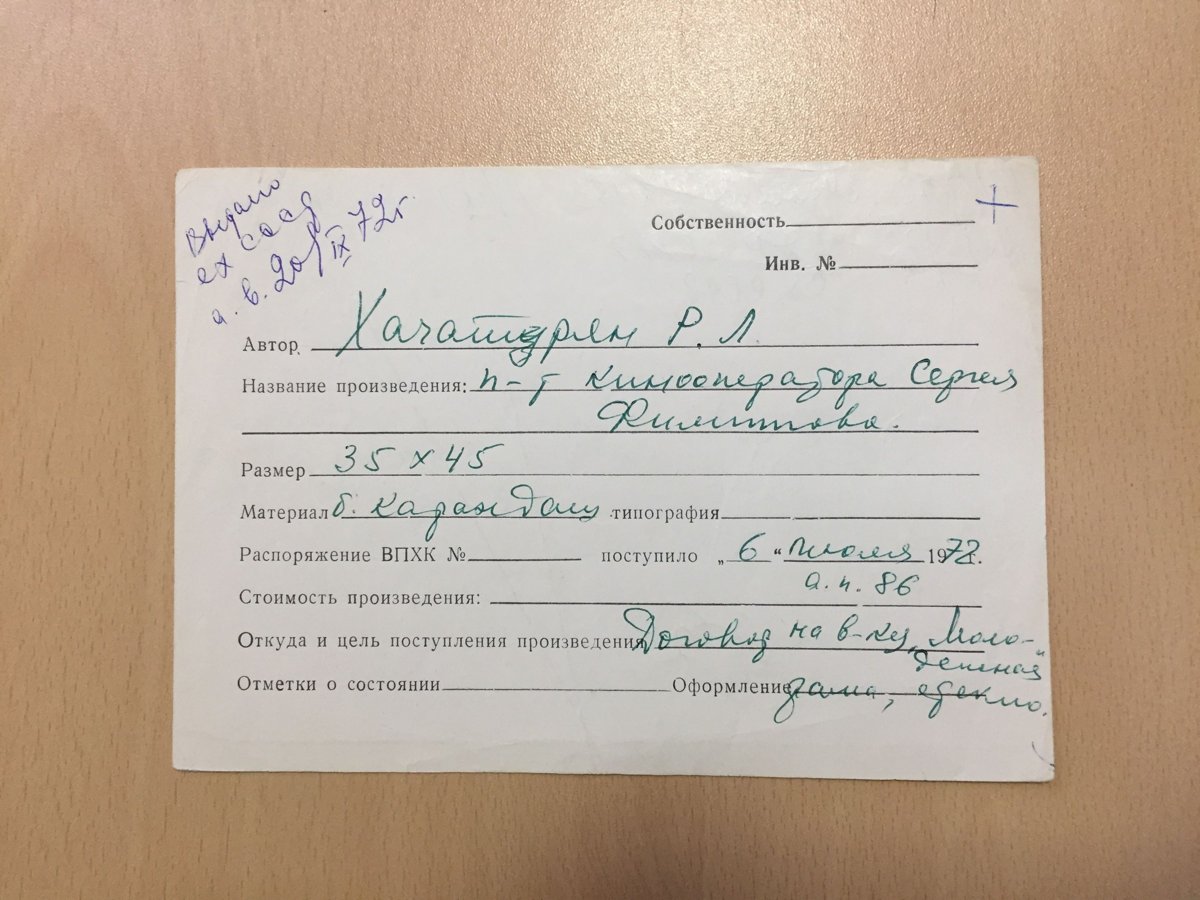 Выдано
СССР
а. в. 20/IX 72г.
Собственность
+
Инв. №
Автор Хачатурян Р. Л.
Название произведения: п-т кинооператора Сергея
Филиппова.
Размер 35 х 45
Материал б. карандаш типография
Распоряжение ВПХК № поступило „ 6 “ июля 1972г.
а. п. 86
Стоимость произведения:
Откуда и цель поступления произведения Договор на в-ку „Моло-
дежная“
Отметки о состоянии Оформление рама, стекло.